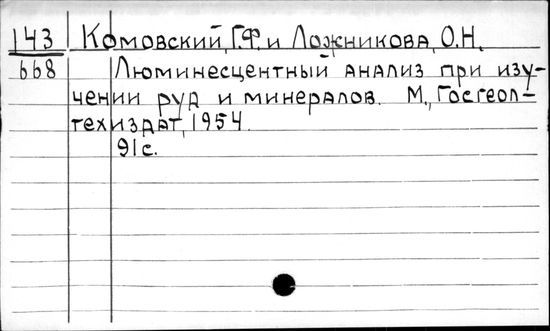 143 Комовский, Г.Ф. и Ложникова, О.Н.
668 Люминесцентный анализ при изу-
чении руд и минералов. М., Госгеол-
техиздат, 1954.
91с.